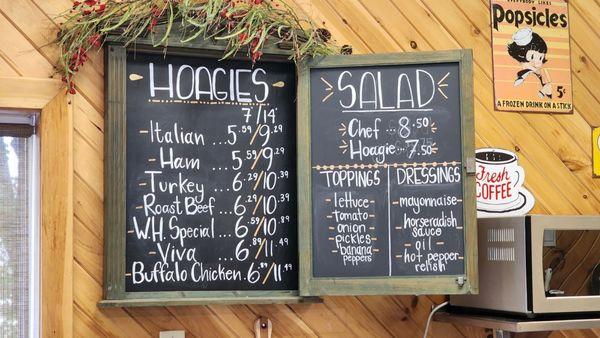 HOAGIES
7"/14"
Italian ...5.59/9.29
Ham ...5.59/9.29
Turkey ...6.29/10.39
Roast Beef ...6.29/10.39
W.H. Special ...6.59/10.89
Viva ...6.89/11.49
Buffalo Chicken. 6.89/11.49
SALAD
Chef ... 8.50
Hoagie ... 7.50
TOPPINGS
lettuce
tomato
onion
pickles
banana
peppers
DRESSINGS
mayonnaise
horseradish
sauce
oil
hot pepper
relish
EVERYBODY LIKES
Popsicles
A FROZEN DRINK ON A STICK
Fresh
COFFEE